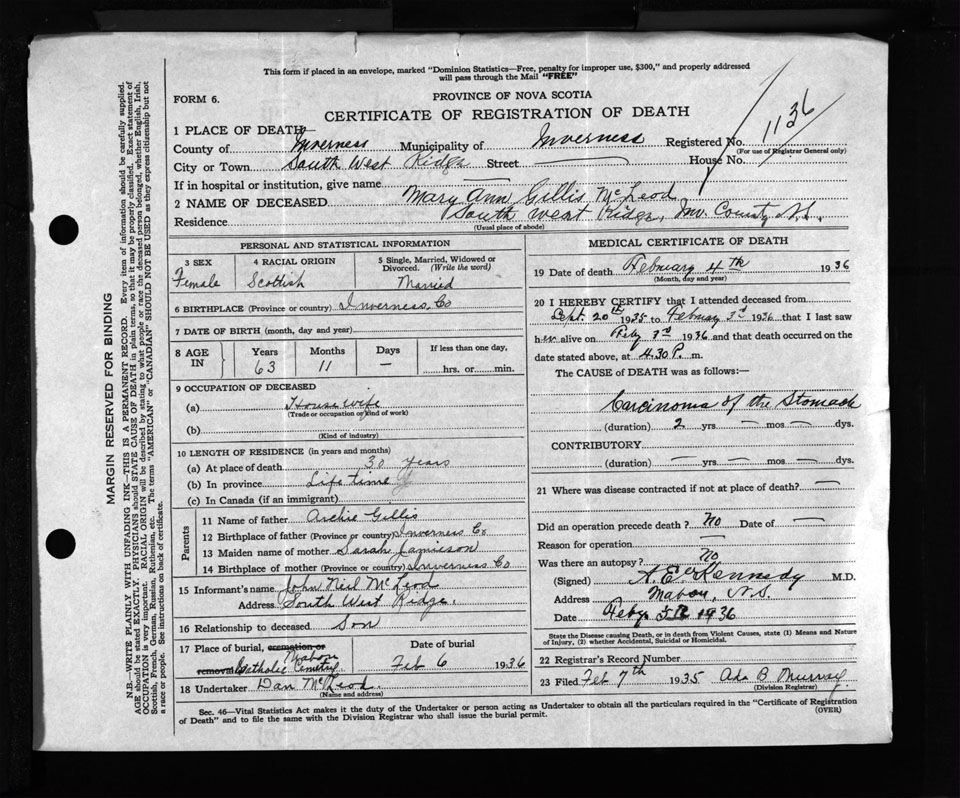 This form if placed in an envelope, marked "Dominion Statistics—Free, penalty for improper use, $300," and properly addressed
will pass through the Mail "FREE"
FORM 6.
PROVINCE OF NOVA SCOTIA
CERTIFICATE OF REGISTRATION OF DEATH
1136
1 PLACE OF DEATH—
County of Inverness Municipality of Inverness Registered No.
(For use of Registrar General only)
City or Town South West Ridge Street — House No.
If in hospital or institution, give name —
2 NAME OF DECEASED Mary Ann Gillis McLeod
Residence South West Ridge, Inv. County N.S.
(Usual place of abode)
PERSONAL AND STATISTICAL INFORMATION
3 SEX
Female
4 RACIAL ORIGIN
Scottish
5 Single, Married, Widowed or
Divorced. (Write the word)
Married
6 BIRTHPLACE (Province or country) Inverness, Co
7 DATE OF BIRTH (month, day and year)
8 AGE IN
Years Months Days If less than one day,
63 11 — hrs. or min.
9 OCCUPATION OF DECEASED
(a) House wife
(Trade or occupation or kind of work)
(b)
(Kind of industry)
10 LENGTH OF RESIDENCE (in years and months)
(a) At place of death 30 years
(b) In province Life time
(c) In Canada (if an immigrant)
Parents
11 Name of father Archie Gillis
12 Birthplace of father (Province or country) Inverness Co.
13 Maiden name of mother Sarah Jamieson
14 Birthplace of mother (Province or country) Inverness Co
15 Informant's name John Neil McLeod
Address South West Ridge.
16 Relationship to deceased Son
17 Place of burial, cremation or removal Mabou Catholic Cemetery
Date of burial
Feb 6 1936
18 Undertaker Dan McLeod.
(Name and address)
MEDICAL CERTIFICATE OF DEATH
19 Date of death February 4th 1936
(Month, day and year)
20 I HEREBY CERTIFY that I attended deceased from
Sept. 20th 1935 to February 3rd 1936 that I last saw
her alive on Feby 3rd and that death occurred on the
date stated above, at 4.30 P. m.
The CAUSE of DEATH was as follows:—
Carcinoma of the Stomach
(duration) 2 yrs — mos — dys.
CONTRIBUTORY
(duration) — yrs — mos — dys.
21 Where was disease contracted if not at place of death? —
Did an operation precede death? No Date of —
Reason for operation —
Was there an autopsy? No
(Signed) Kennedy M.D.
Address Mabou, N.S.
Date Feby 5th 1936
State the Disease causing Death, or in death from Violent Causes, state (1) Means and Nature
of Injury, (2) whether Accidental, Suicidal or Homicidal.
22 Registrar's Record Number
23 Filed Feb 7th 1935 Ada B Murray
(Division Registrar)
Sec. 46—Vital Statistics Act makes it the duty of the Undertaker or person acting as Undertaker to obtain all the particulars required in the "Certificate of Registration
of Death" and to file the same with the Division Registrar who shall issue the burial permit.
(OVER)
MARGIN RESERVED FOR BINDING
N.B.—WRITE PLAINLY WITH UNFADING INK—THIS IS A PERMANENT RECORD. Every item of information should be carefully supplied.
AGE should be stated EXACTLY. PHYSICIANS should STATE CAUSE OF DEATH in plain terms, so that it may be properly classified. Exact statement of
OCCUPATION is very important. RACIAL ORIGIN will be described by stating to what people or race the deceased person belonged, whether English, Irish,
Scottish, French, German, Russian, Ruthenian, etc. The terms "AMERICAN" or "CANADIAN" SHOULD NOT BE USED as they express citizenship but not
a race or people. See instructions on back of certificate.